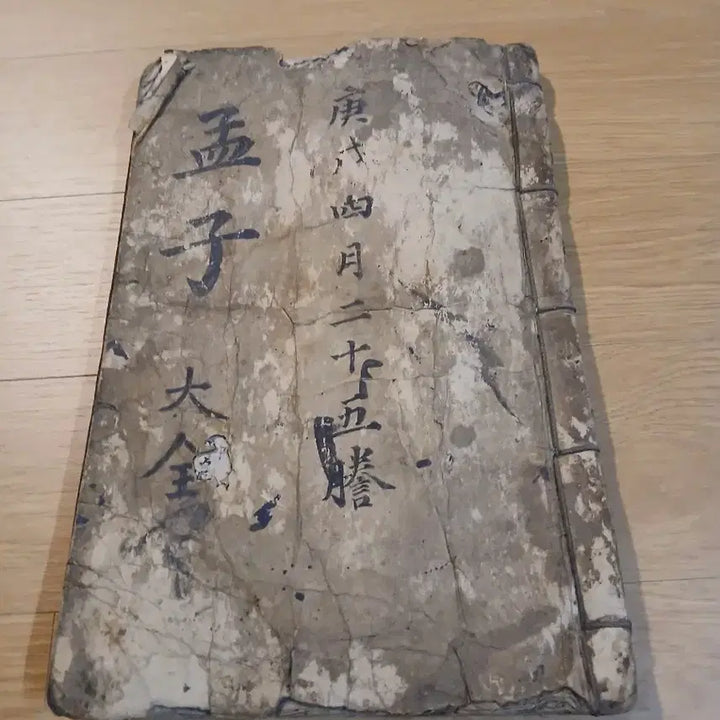 庚戌四月二十五謄
孟子大全